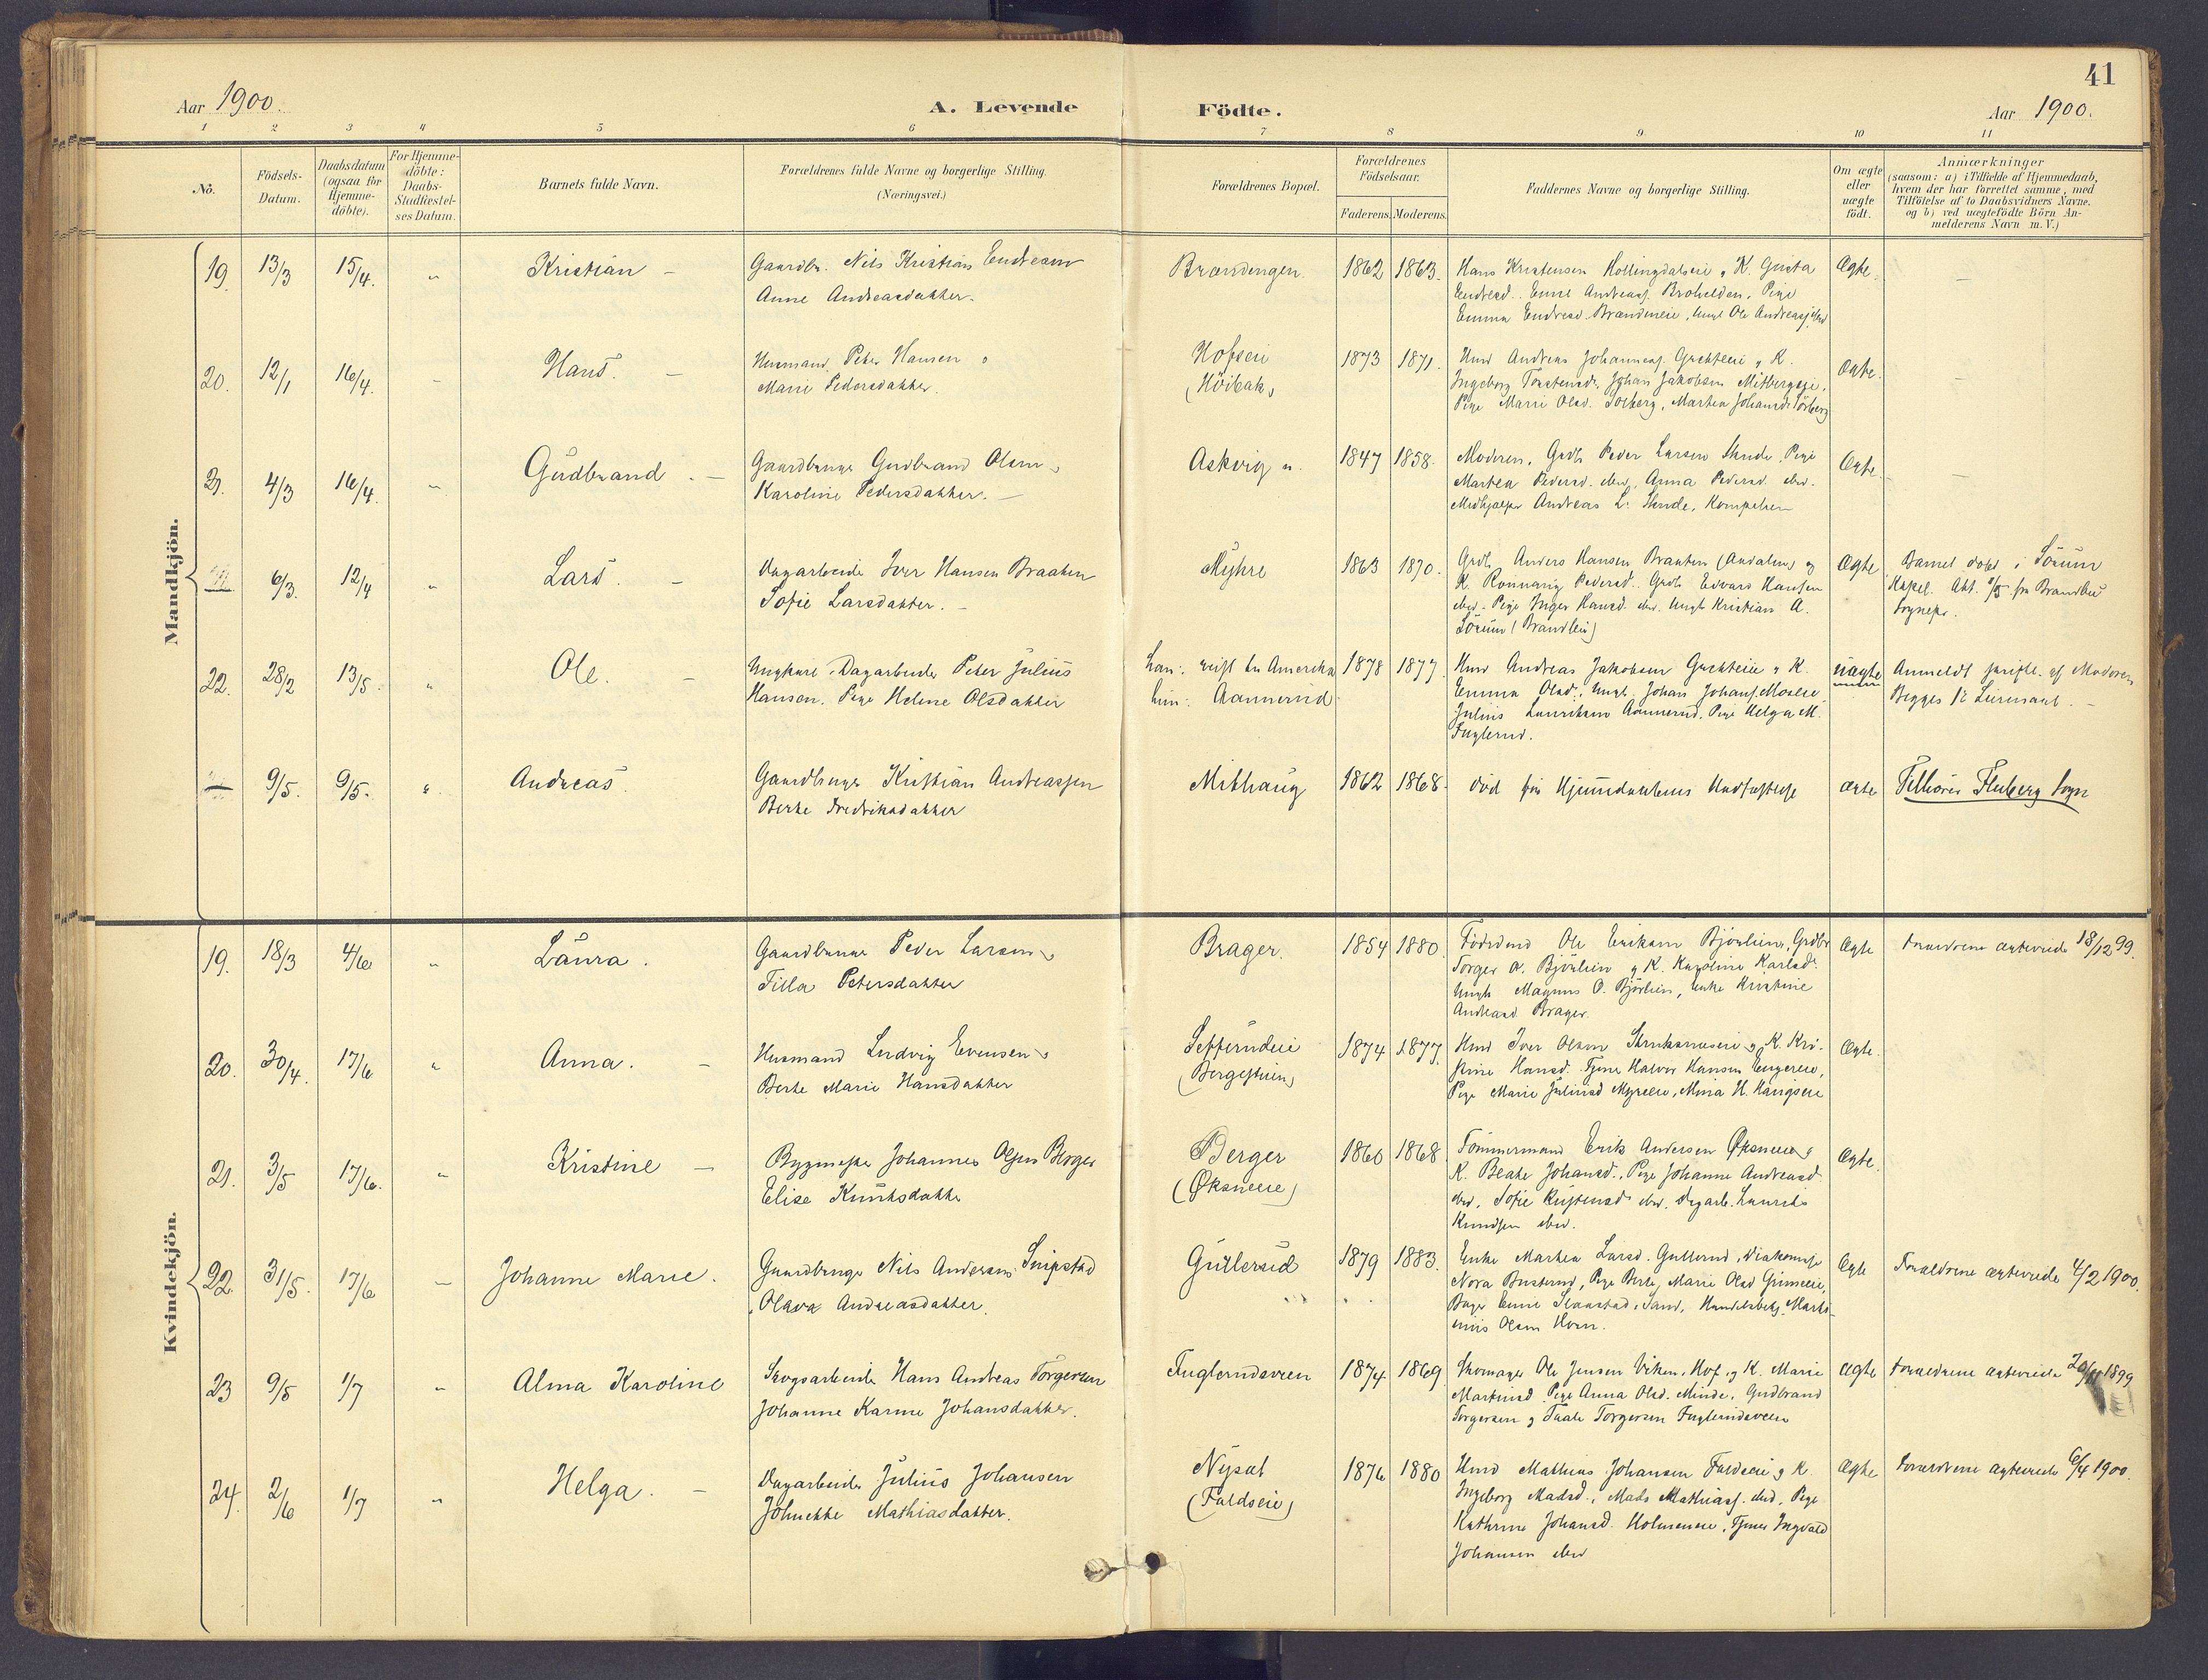 41
Aar 1900.
A. Levende Födte.
Aar 1900.
1 2 3 4 5 6 7 8 9 10 11
No.
Födsels-
Datum.
Daabsdatum
(ogsaa for
Hjemme-
döbte).
For Hjemme-
döbte:
Daabs-
Stadfæstel-
ses Datum.
Barnets fulde Navn.
Forældrenes fulde Navne og borgerlige Stilling.
(Næringsvei.)
Forældrenes Bopæl.
Forældrenes
Födselsaar.
Faderens. Moderens.
Faddernes Navne og borgerlige Stilling.
Om ægte
eller
uægte
födt.
Anmærkninger
(saasom: a) i Tilfælde af Hjemmedaab,
hvem der har forrettet samme, med
Tilföielse af to Daabsvidners Navne.
og b) ved uægtefödte Börn An-
melderens Navn m. V.)
Mandkjön.
19. 13/3 15/4. " Kristian –
Gaardbr. Nils Kristian Endresen
Anne Andreasdatter.
Brændengen. 1862 1863.
Hans Kristensen Hollingdalseie, K. Gusta
Endresd. Emil Andreass. Broholden, Pige
Emma Endresd. Brændneie, Ungk Ole Andreass.
Ægte. –
20. 12/1 16/4. " Hans. –
Husmand Peter Hansen o
Marie Pedersdatter.
Hofseie
(Höibak)
1873 1871.
Husm Andreas Johanness. Guchteeie, K.
Ingeborg Torstensdr, Johan Jakobsen Mitbergseie,
Pige Marie Olsd. Solberg, Marthea Johansdr
Ægte. –
21. 4/3 16/4. " Gudbrand. –
Gaardbruger Gudbrand Olsen o
Karoline Pedersdatter. –
Askvig n. 1847 1858.
Moderen, Grdb. Peder Larsen Skude, Pige
Marthea Pedersd. ibid, Anna Pedersd. ibid.
Medhjælper Andreas L. Skude, Kompelien
Ægte. –
6/3. 12/4 " Lars. –
Dagarbeider Iver Hansen Braaten
Sofie Larsdatter. –
Myhre 1863 1870.
Grdb. Anders Hansen Braaten (Aadalen) og
K. Rønnaug Pedersd. Grdb. Edvard Hansen
ibid. Pige Inger Hansd. ibid. Ungk Kristian A.
Sörum (Brandbu)
Ægte
Barnet döbt i Sörum
Kapel. Att. fra Brandbu
Sognepr.
22. 28/2 13/5. " Ole. –
Ungkarl, Dagarbeider Peter Julius
Hansen. Pige Helene Olsdatter
han: reist til Amerika
hun: Aannerud
1878 1877.
Husm Andreas Jakobsen Guchteeie, K.
Emma Olsd., Ungk. Johan Johans. Moseeie
Julius Lauritsen Aannerud. Pige Helga M.
Fuglerud.
uægte
Anmeldt skriftl. af Moderen
Begges 1ste Leiermaal. –
9/5. 9/5. " Andreas.
Gaardbruger Kristian Andreassen
Berte Fredriksdatter
Mithaug 1862 1868.
död før Hjemmedaabens Stadfæstelse
ægte
Tilhörer Fluberg Sogn
Kvindekjön.
19. 18/3 4/6 " Laura.
Gaardbruger Peder Larsen o
Tilla Petersdatter
Brager. 1854 1880.
Föderaad Ole Eriksen Bjørlien, Grdbr
Torger O. Bjørlien, K. Karoline Karlsd.
Ungk Magnus O. Bjørlien, Enke Kristine
Andreasd. Brager.
Ægte
Forældrene ægteviede 18/12 99.
20. 30/4. 17/6 " Anna. –
Husmand Ludvig Evensen o
Berte Marie Hansdatter
Sefferudeie
(Bergestuen)
1874 1877.
Husm Iver Olsen Skrukarudeie og K. Kri-
stine Hansd. Tjener Halvor Hansen Engereie,
Pige Marie Juliusd Myreeie, Mina H. Haugseie
Ægte.
21. 3/5 17/6. " Kristine –
Bygmester Johannes Olsen Berger
Elise Knutsdatter
Berger
(Øksneeie)
1860 1868.
Tömmermand Erik Andersen Øksneeie,
K. Beate Johansd., Pige Johanne Andreasd.
ibid. Sofie Kristensd ibid. Dagarb. Laurits
Knudsen ibid.
Ægte.
22. 31/5. 17/6 " Johanne Marie.
Gaardbruger Nils Andersen Snipstad
Olava Andreasdatter.
Gullerud 1879 1883.
Enke Marthea Larsd. Gullerud, Diakonisse
Nora Busterud, Pige Berte Marie Olsd Grimeeie,
Emil Slaastad, Sand, Handelsbetj. Marti-
nius Olsen Horn.
Ægte
Forældrene ægteviede 4/2 1900.
23 9/5 1/7 " Alma Karoline
Skogsarbeider Hans Andreas Torgersen
Johanne Karine Johansdatter.
Fuglerudsveen 1874 1869
Skomager Ole Jensen Viken, Hof, og K. Marie
Martinsd. Pige Anna Olsd. Minde, Gudbrand
Torgersen, Thale Torgersen Fuglerudsveen
Ægte
Forældrene ægteviede 20/11 1899
24. 2/6 1/7 " Helga. –
Dagarbeider Julius Johansen
Johnette Mathiasdatter.
Nysæt
(Faldseie)
1876 1880
Husm Mathias Johansen Faldseie, K.
Ingeborg Madsd., Mads Mathiass. ibid, Pige
Kathrine Johansd. Holmeneie, Tjener Ingvald
Johansen ibid
Ægte
Forældrene ægteviede 6/4 1900.